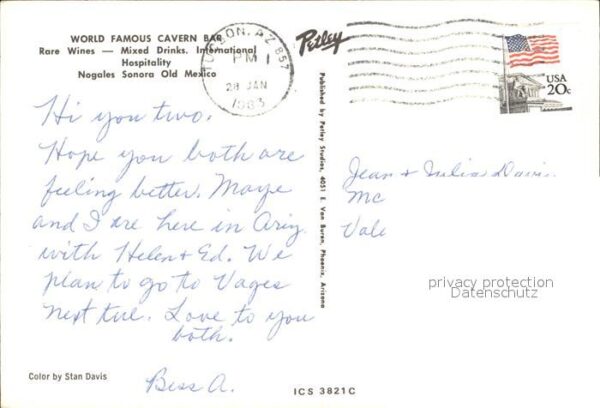 WORLD FAMOUS CAVERN BAR
Rare Wines — Mixed Drinks. International
Hospitality
Nogales Sonora Old Mexico
Petley
TUCSON, AZ 857
PM
28 JAN
1983
USA
20c
Hi you two.
Hope you both are
feeling better. Maye
and I are here in Ariz
with Helen & Ed. We
plan to go to Vages
next tue. Love to you
both.
Bess A.
Published by Petley Studios, 4051 E. Van Buren, Phoenix, Arizona
Jean & Davis
Mc
Vale
privacy protection
Datenschutz
Color by Stan Davis
ICS 3821C